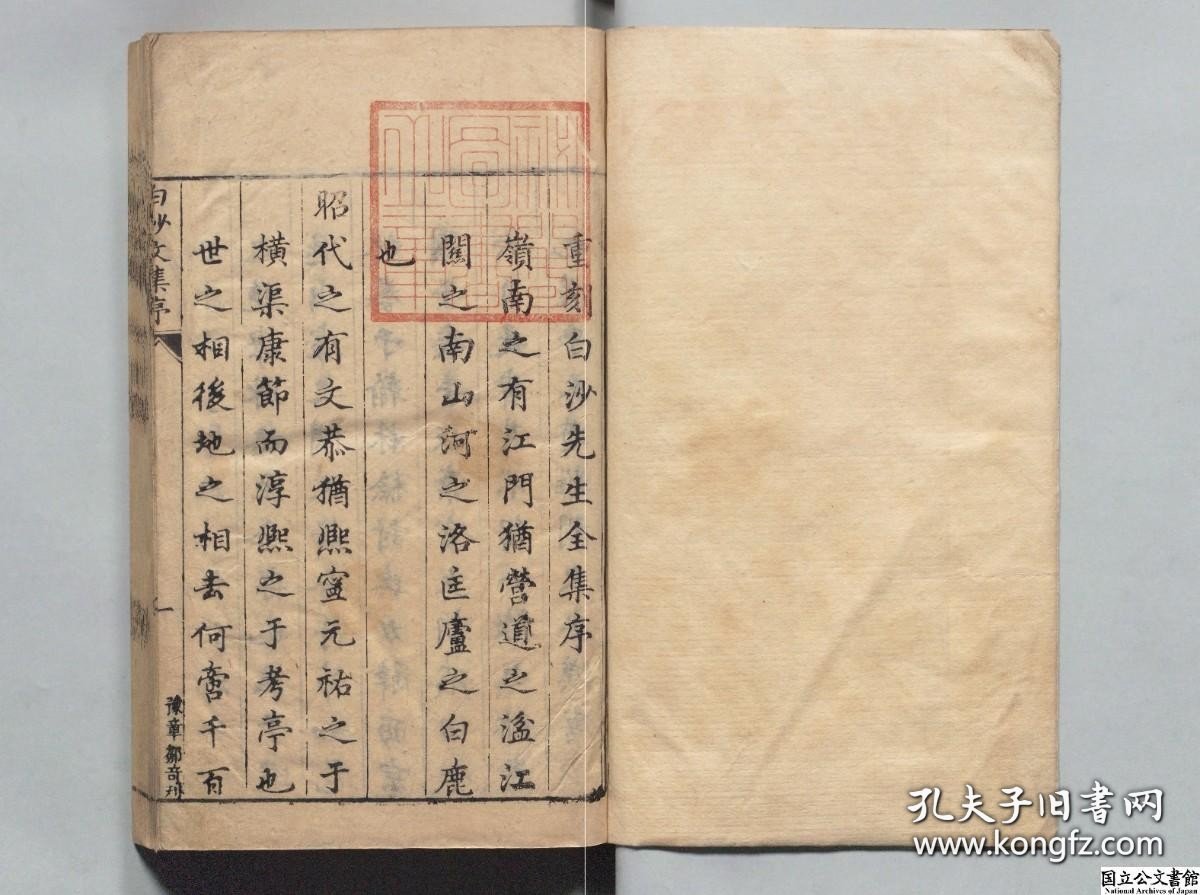 重刻白沙先生全集序
嶺南之有江門猶營道之湓江
關之南山河之洛匡廬之白鹿
也
昭代之有文恭猶熙寧元祐之于
橫渠康節而淳熙之于考亭也
世之相後地之相去何啻千百
白沙文集序
一
豫章鄒奇刊
孔夫子旧书网
www.kongfz.com
国立公文書館
National Archives of Japan